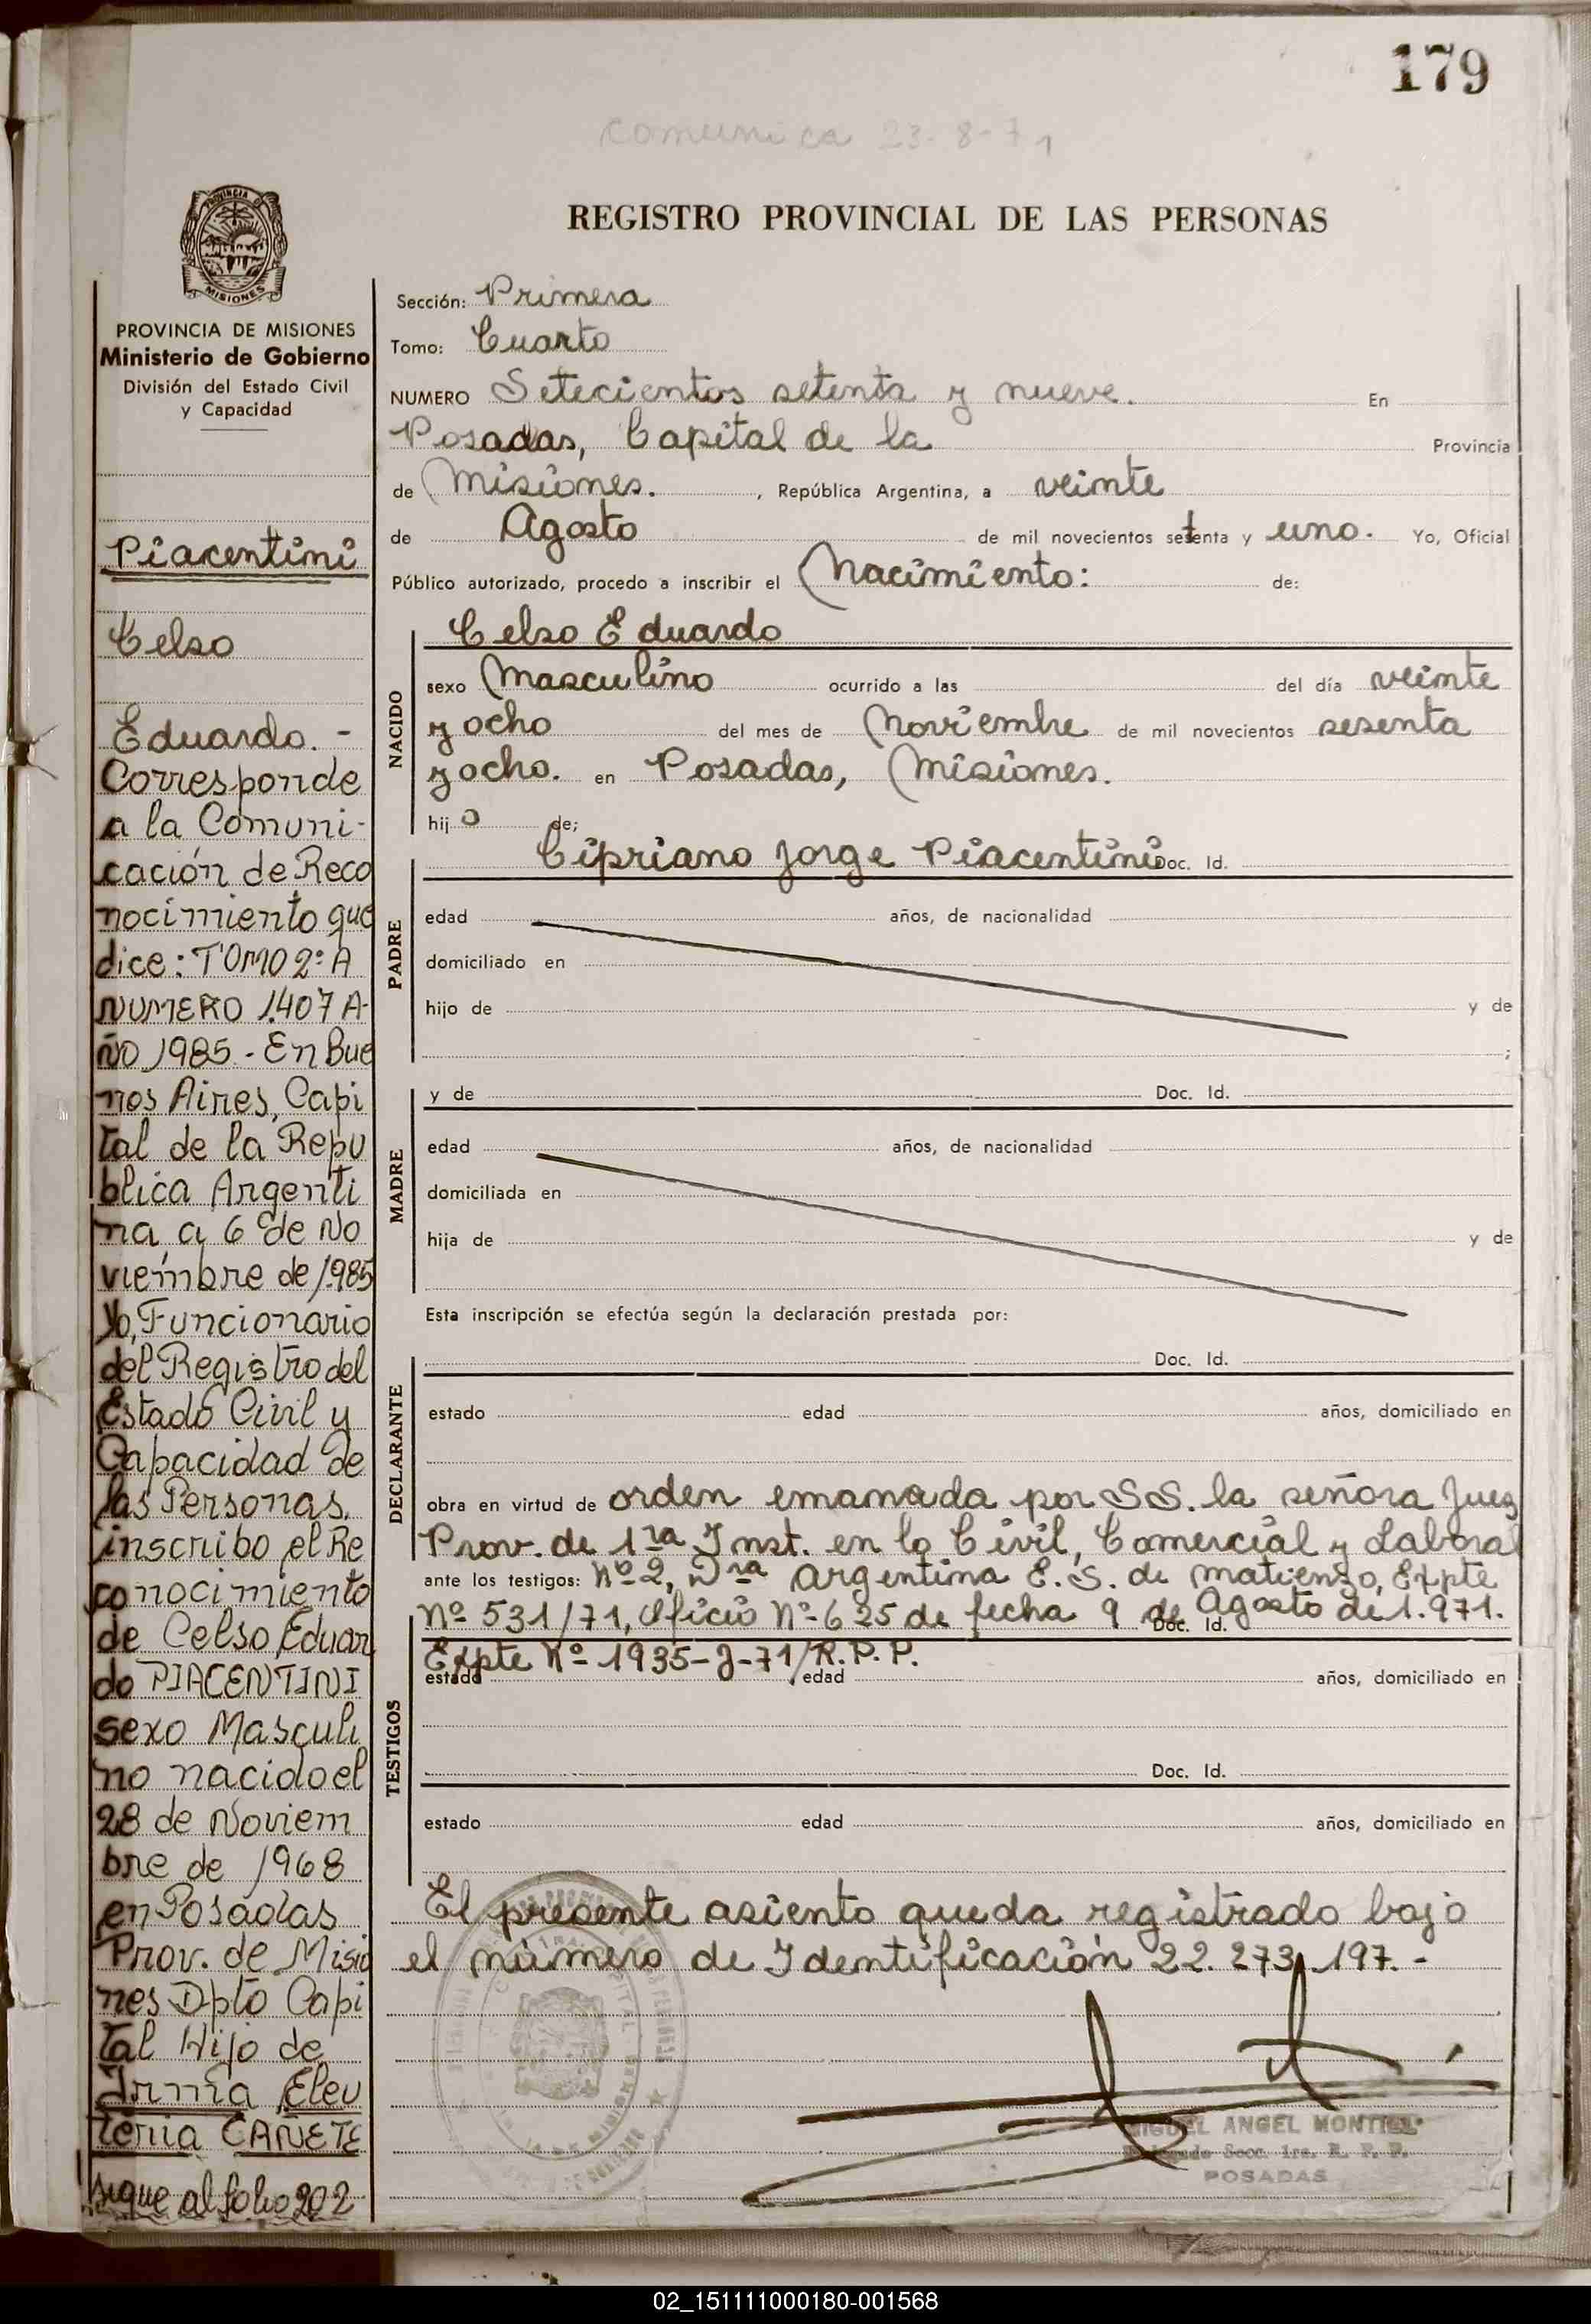 179
comunica 23-8-71
REGISTRO PROVINCIAL DE LAS PERSONAS
PROVINCIA
MISIONES
PROVINCIA DE MISIONES
Ministerio de Gobierno
División del Estado Civil
y Capacidad
Piacentini
Celso
Eduardo. -
Corresponde
a la Comuni-
cación de Reco
nocimiento que
dice: TOMO 2º A
NUMERO 1.407 A-
ÑO 1985.- En Bue
nos Aires, Capi
tal de la Repu
blica Argenti
na, a 6 de No
viembre de 1.985
Yo, Funcionario
del Registro del
Estado Civil y
Capacidad de
las Personas.
inscribo el Re
conocimiento
de Celso Eduar
do PIACENTINI
sexo Masculi
no nacido el
28 de Noviem
bre de 1968
en Posadas
Prov. de Misio
nes Dpto Capi
tal Hijo de
Irma Eleu
teria CAÑETE
sigue al folio 202
Sección: Primera
Tomo: Cuarto
NUMERO Setecientos setenta y nueve. En
Posadas, Capital de la Provincia
de Misiones. , República Argentina, a veinte
de Agosto de mil novecientos setenta y uno. Yo, Oficial
Público autorizado, procedo a inscribir el Nacimiento: de:
NACIDO
Celso Eduardo
sexo Masculino ocurrido a las del día veinte
y ocho del mes de Noviembre de mil novecientos sesenta
y ocho. en Posadas, Misiones.
hijo de;
PADRE
Cipriano Jorge Piacentini Doc. Id.
edad años, de nacionalidad
domiciliado en
hijo de y de
;
MADRE
y de Doc. Id.
edad años, de nacionalidad
domiciliada en
hija de y de
Esta inscripción se efectúa según la declaración prestada por:
DECLARANTE
Doc. Id.
estado edad años, domiciliado en
obra en virtud de orden emanada por SS. la señora Juez
Prov. de 1ra Inst. en lo Civil, Comercial y Laboral
ante los testigos: Nº 2, Dra Argentina E. S. de Matienzo, Expte
Nº 531/71, Oficio Nº 625 de fecha 9 de Agosto de 1.971.
Doc. Id.
TESTIGOS
Expte Nº 1935-J-71/R.P.P.
estado edad años, domiciliado en
Doc. Id.
estado edad años, domiciliado en
El presente asiento queda registrado bajo
el número de Identificación 22.273.197.-
MIGUEL ANGEL MONTIEL
Delegado Secc. 1ra. R. P. P.
POSADAS
02_151111000180-001568